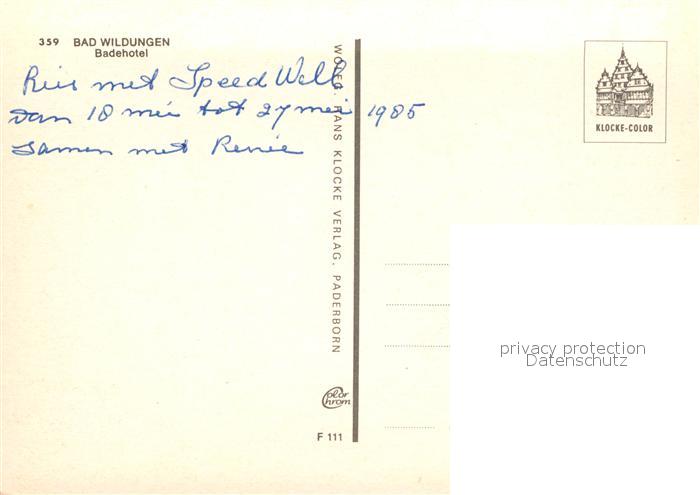 359 BAD WILDUNGEN
Badehotel
Reis met Speed Well
van 18 mei tot 27 mei 1985
samen met Renée
WOLFG. HANS KLOCKE VERLAG, PADERBORN
KLOCKE-COLOR
privacy protection
Datenschutz
Color
chrom
F 111